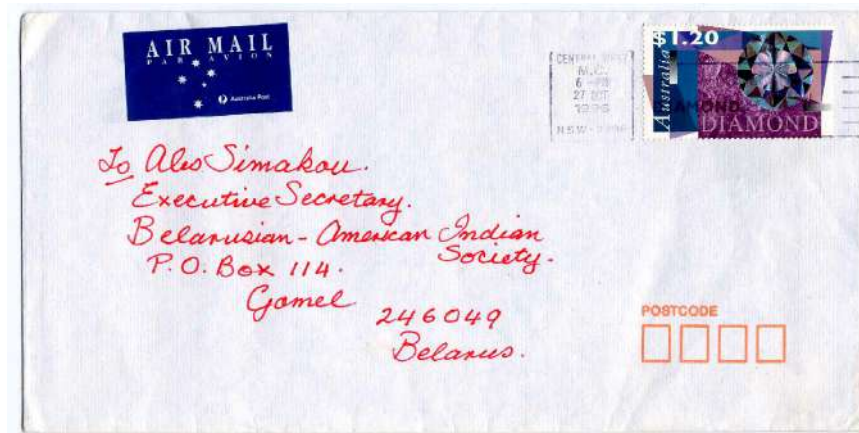 AIR MAIL
PAR AVION
Australia Post
CENTRAL WEST
M.C.
6 - PM
27 OCT
1996
$1.20
Australia
DIAMOND
DIAMOND
To Ales Simakou.
Executive Secretary.
Belarusian - American Indian
Society.
P.O. Box 114.
Gomel
246049
Belarus.
POSTCODE